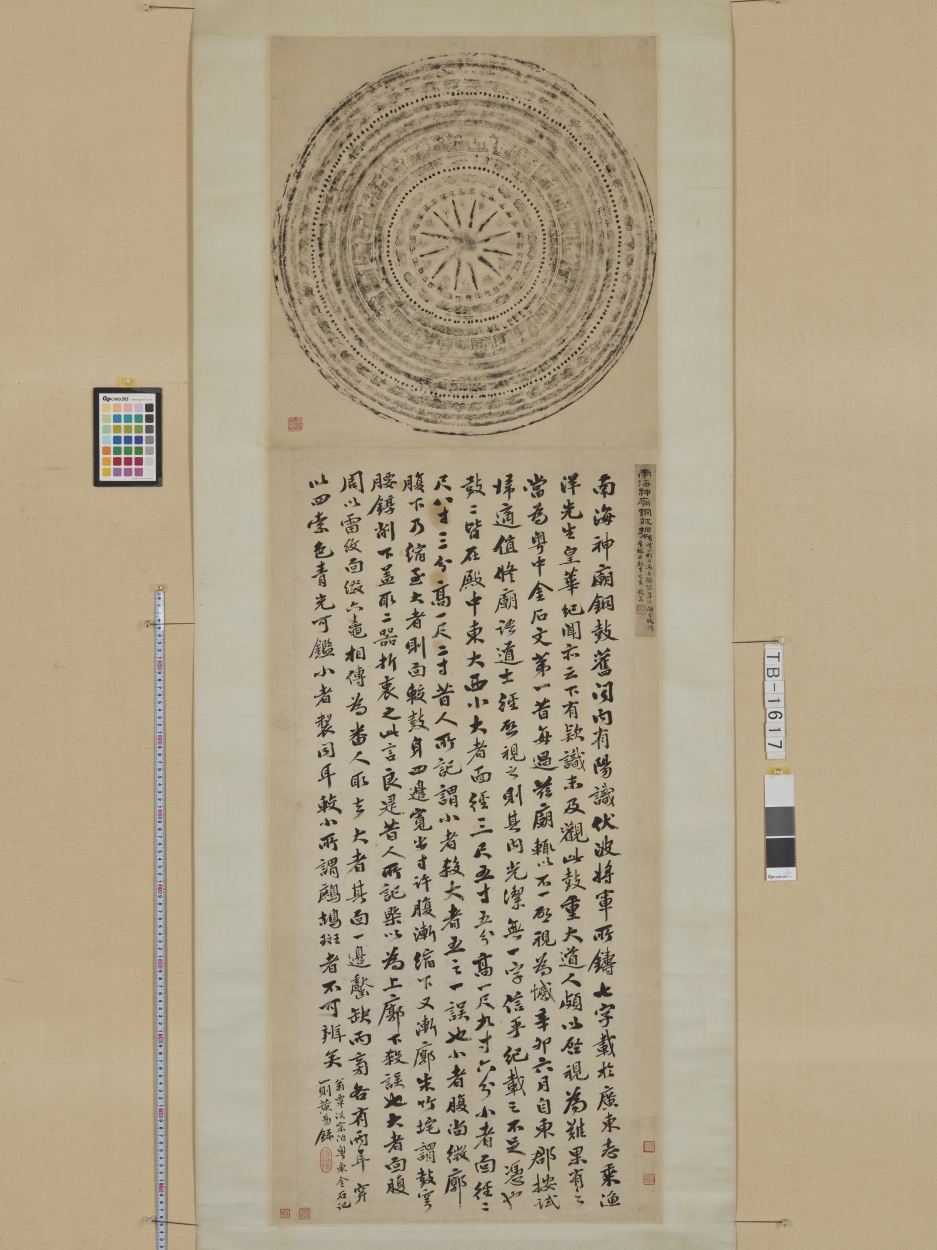 南海神廟銅鼓拓
南海神廟銅鼓舊聞內有陽識伏波將軍所鑄七字載於廣東志乘漁
洋先生皇華紀聞亦云下有款識未及觀此鼓重大道人頗以啓視為難果有之
當為粵中金石文第一昔每過茲廟輒以不一啓視為憾辛卯六月自東郡按試
歸適值修廟語道士經啓視之則其內光潔無一字信乎紀載之不足憑也
鼓二皆在殿中東大西小大者面徑三尺五寸五分高一尺九寸六分小者面徑二
尺八寸三分高一尺二寸昔人所記謂小者殺大者五之一誤也小者腹尚微廓
腹下乃縮至大者則面較鼓身四邊寬出寸許腹漸縮下又漸廓朱竹垞謂鼓穹
腰鐏削下蓋取二器折衷之此言良是昔人所記槩以為上廓下殺誤也大者面腹
周以雷紋面綴六鼃相傳為番人取去大者其面一邊鑿缺兩旁各有兩耳穿
以四索色青光可鑑小者製同耳較小所謂鷓鴣斑者不可辨矣
翁覃溪宗伯粵東金石記
一則黃易錄
TB-1617
QPCARD 203